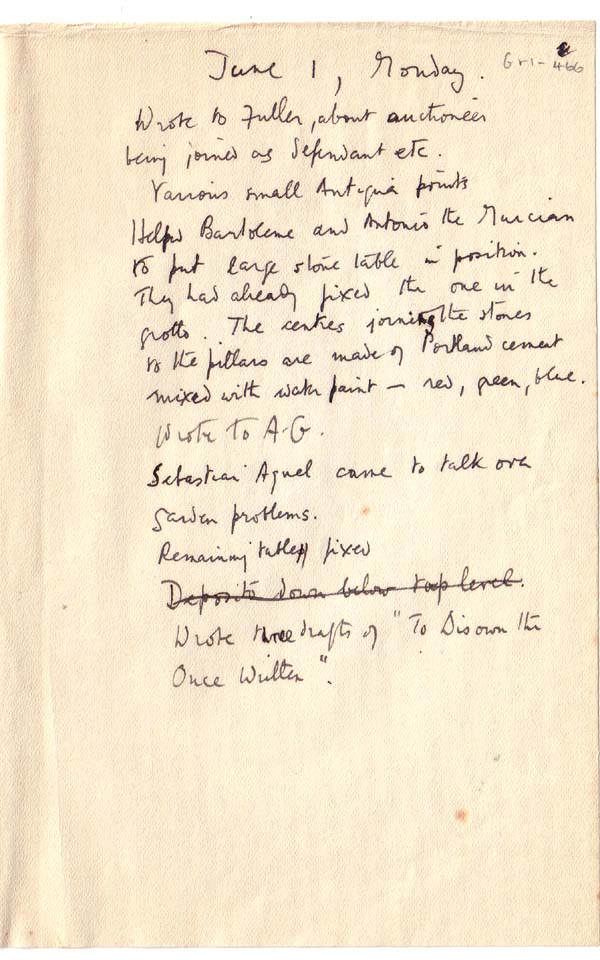 June 1, Monday.
Wrote to Fuller, about auctioneer
being joined as defendant etc.
Various small Antigua points
Helped Bartoleme and Antonio the Murcian
to put large stone table in position.
They had already fixed the one in the
grotto. The centres joining the stones
to the pillars are made of Portland cement
mixed with water paint — red, green, blue.
Wrote to A-G.
Sebastian came to talk over
garden problems.
Remaining tables fixed
Deposito down below top level.
Wrote three drafts of "To Disown the
Once Written".